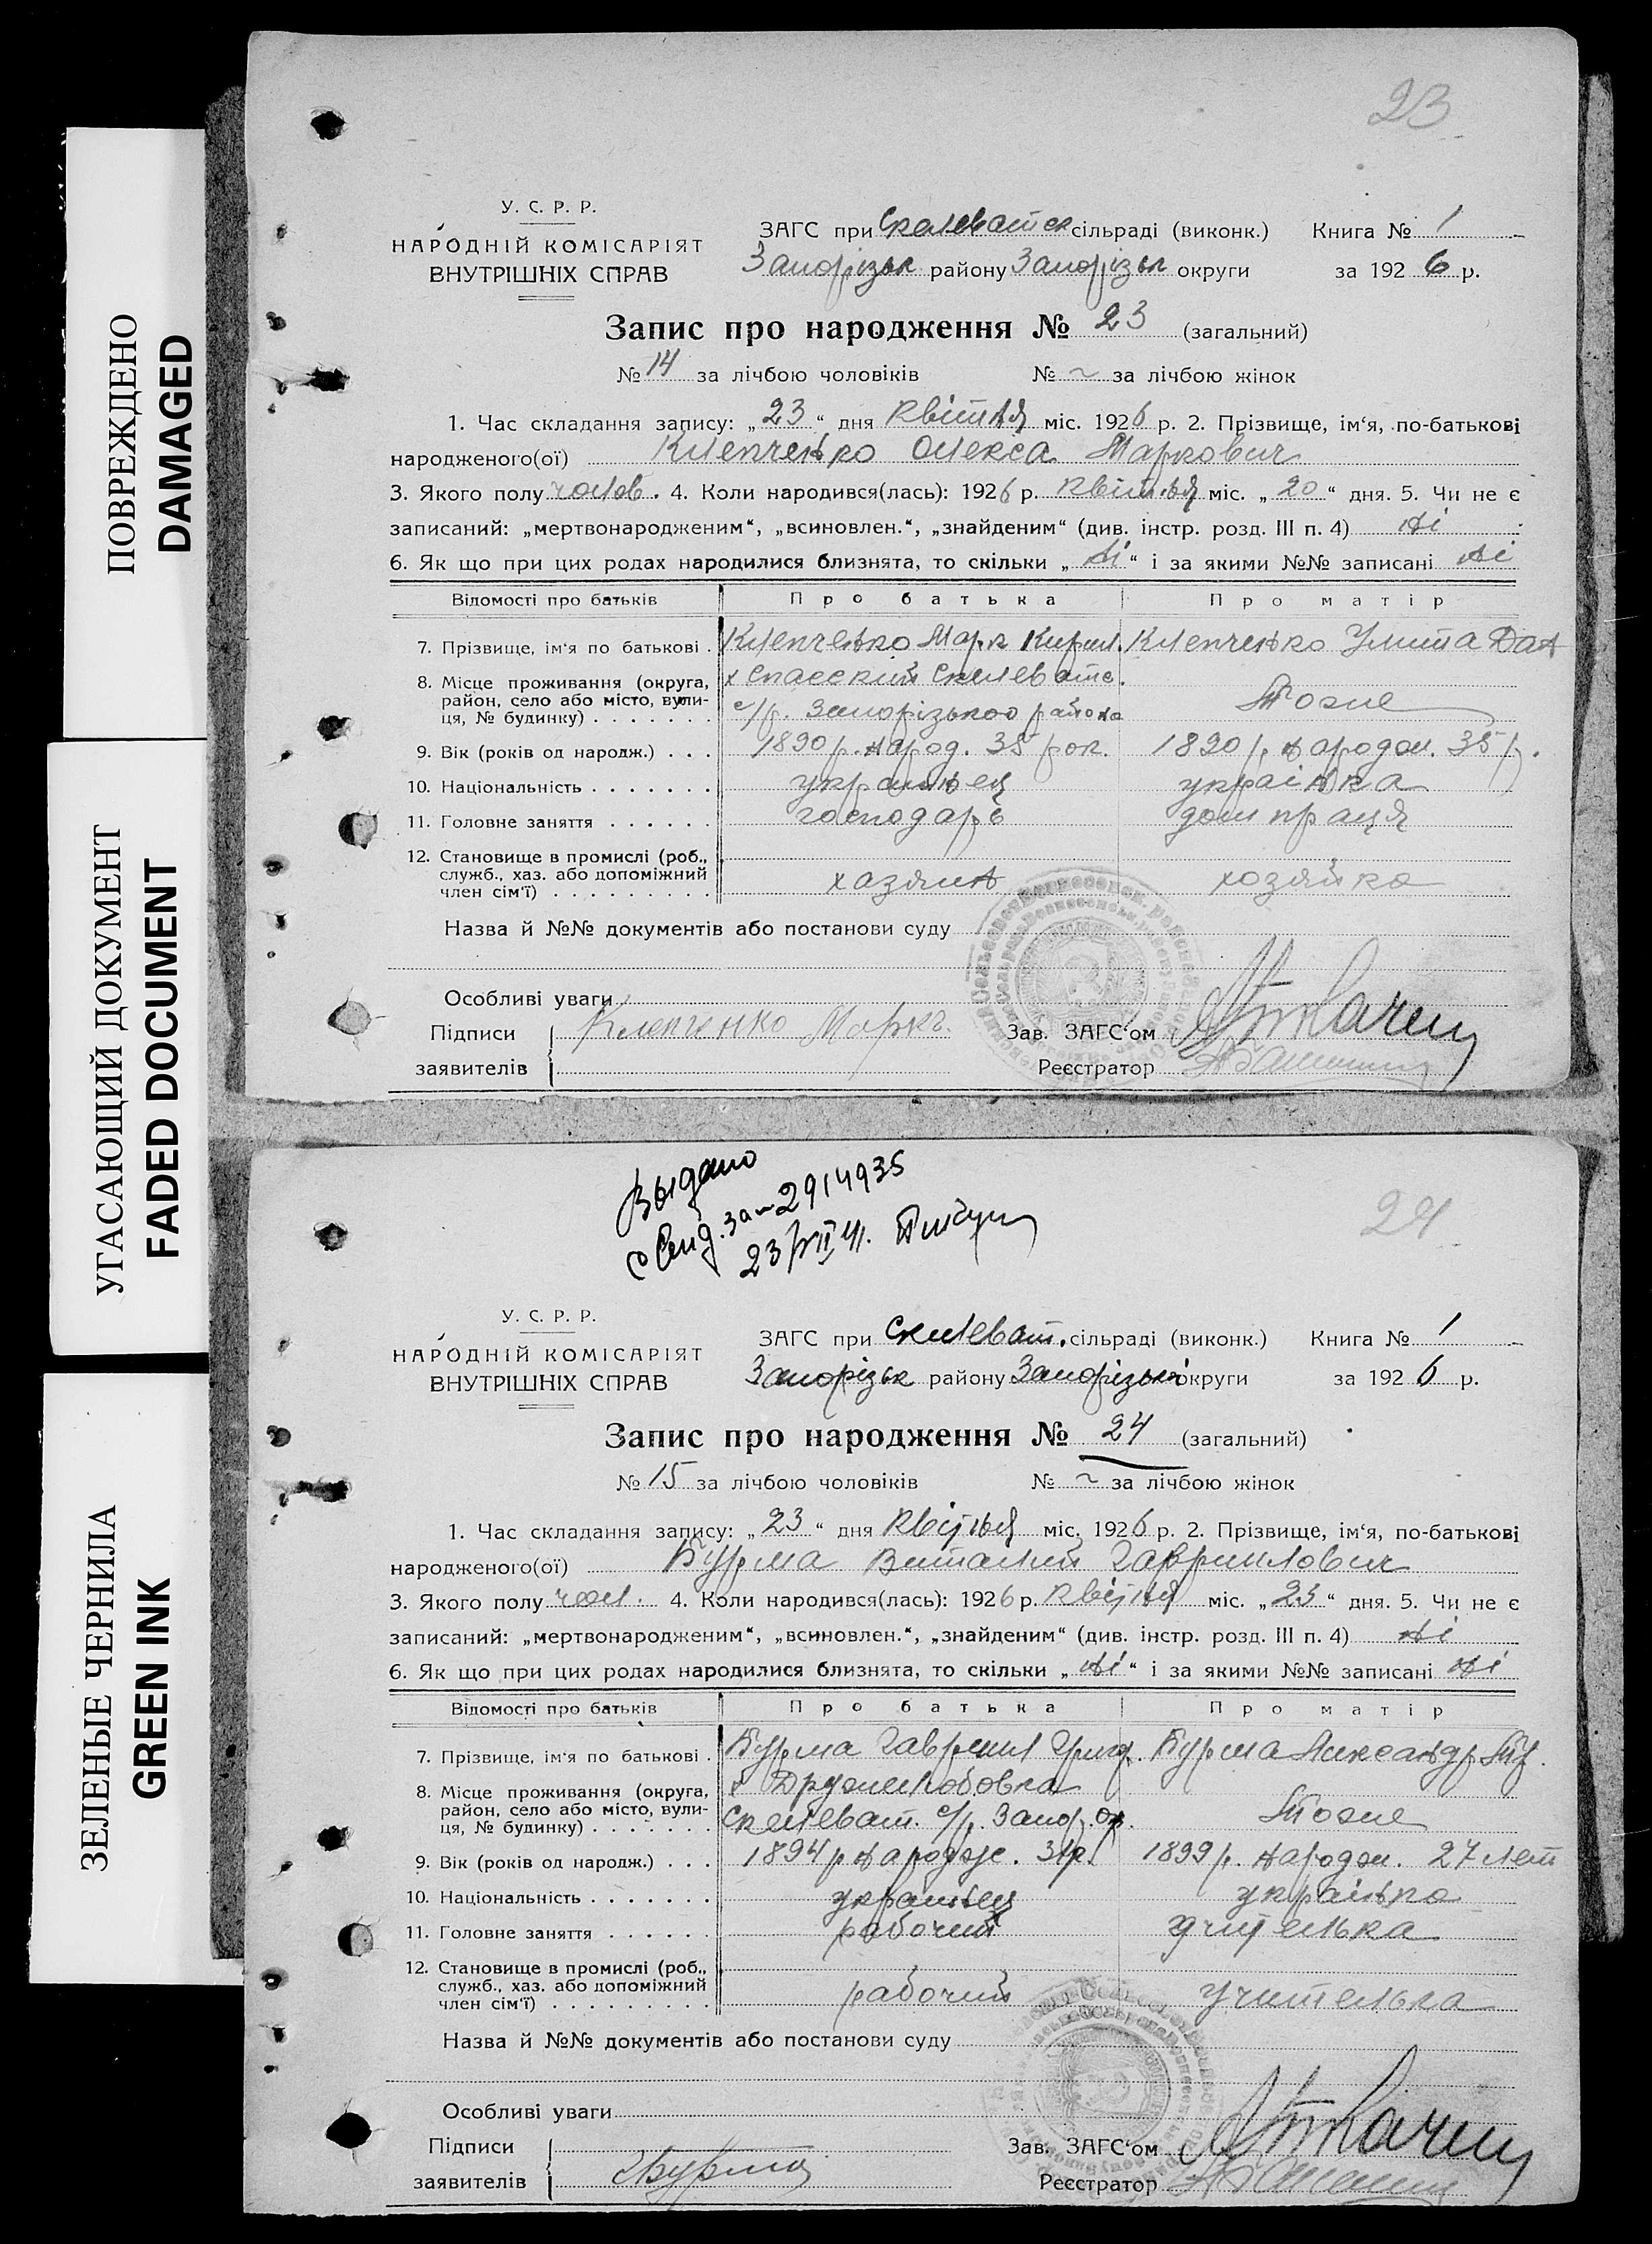 ПОВРЕЖДЕНО
DAMAGED
УГАСАЮЩИЙ ДОКУМЕНТ
FADED DOCUMENT
ЗЕЛЕНЫЕ ЧЕРНИЛА
GREEN INK
23
У. С. Р. Р.
НАРОДНІЙ КОМІСАРІЯТ
ВНУТРІШНІХ СПРАВ
ЗАГС при Скелеватск сільраді (виконк.) Книга № 1
Запорізьк району Запорізьк округи за 1926 р.
Запис про народження № 23 (загальний)
№ 14 за лічбою чоловіків № ~ за лічбою жінок
1. Час складання запису: „23“ дня квітня міс. 1926 р. 2. Прізвище, ім‘я, по-батькові
народженого(ої) Клепченко Олекса Маркович
3. Якого полу чолов. 4. Коли народився(лась): 1926 р. квітня міс. „20“ дня. 5. Чи не є
записаний: „мертвонародженим“, „всиновлен.“, „знайденим“ (див. інстр. розд. III п. 4) ні
6. Як що при цих родах народилися близнята, то скільки „ні“ і за якими №№ записані ні
Відомості про батьків Про батька Про матір
7. Прізвище, ім‘я по батькові . Клепченко Марк Кирил. Клепченко Улита Дан
8. Місце проживання (округа, район, село або місто, вулиця, № будинку) х Спаский Скелеватс. с/р. Запорізького района Тоже
9. Вік (років од народж.) . . . 1890 р. народ. 35 рок. 1890 р. народж. 35 р.
10. Національність . . . . . . . українец українка
11. Головне заняття . . . . . . господарь дом праця
12. Становище в промислі (роб., служб., хаз. або допоміжний член сім‘ї) . . . . . . . . . хазяин хозяйка
Назва й №№ документів або постанови суду
Особливі уваги
Підписи заявителів Клепченко Маркъ. Зав. ЗАГС‘ом
Реєстратор
Выдано
свид. за № 2914935
24
У. С. Р. Р.
НАРОДНІЙ КОМІСАРІЯТ
ВНУТРІШНІХ СПРАВ
ЗАГС при Скелеват. сільраді (виконк.) Книга № 1
Запорізьк району Запорізькой округи за 1926 р.
Запис про народження № 24 (загальний)
№ 15 за лічбою чоловіків № ~ за лічбою жінок
1. Час складання запису: „23“ дня квітня міс. 1926 р. 2. Прізвище, ім‘я, по-батькові
народженого(ої) Бурма Виталий Гаврилович
3. Якого полу чол. 4. Коли народився(лась): 1926 р. квітня міс. „23“ дня. 5. Чи не є
записаний: „мертвонародженим“, „всиновлен.“, „знайденим“ (див. інстр. розд. III п. 4) ні
6. Як що при цих родах народилися близнята, то скільки „ні“ і за якими №№ записані ні
Відомості про батьків Про батька Про матір
7. Прізвище, ім‘я по батькові . Бурма Гаврил Григ. Бурма Александр
8. Місце проживання (округа, район, село або місто, вулиця, № будинку) х Дружелюбовка Скелеват. с/р. Запор. ок. Тоже
9. Вік (років од народж.) . . . 1894 р народж. 31 р. 1899 р. народж. 27 лет
10. Національність . . . . . . . українец українка
11. Головне заняття . . . . . . рабочий учителька
12. Становище в промислі (роб., служб., хаз. або допоміжний член сім‘ї) . . . . . . . . . рабочий учителька
Назва й №№ документів або постанови суду
Особливі уваги
Підписи заявителів ГБурма Зав. ЗАГС‘ом
Реєстратор